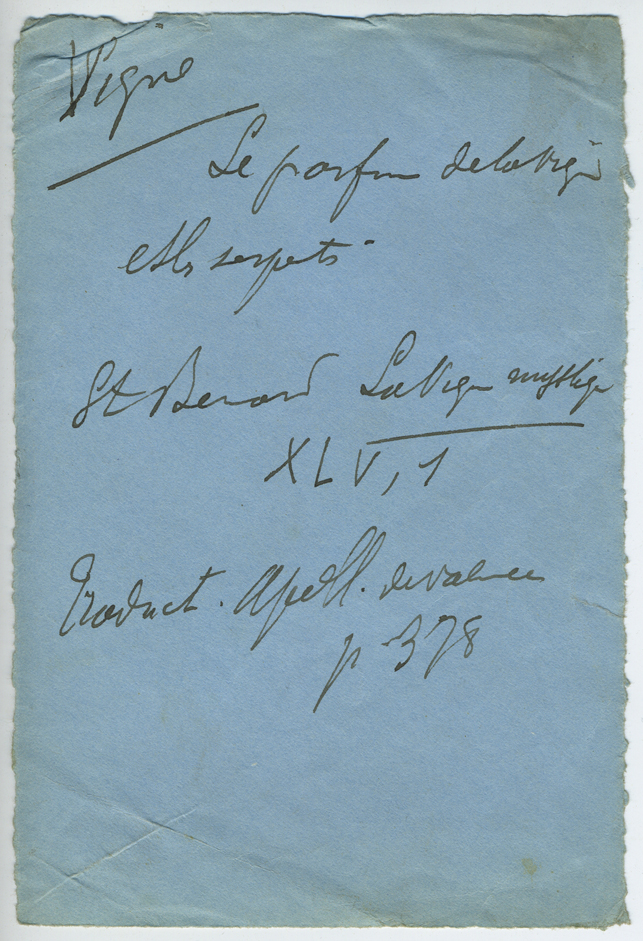 Vigne
Le parfum de la Vigne
et les serpents.
St Bernard La Vigne mystique
XLV, 1
Traduct. Apoll. de Valence
p 378